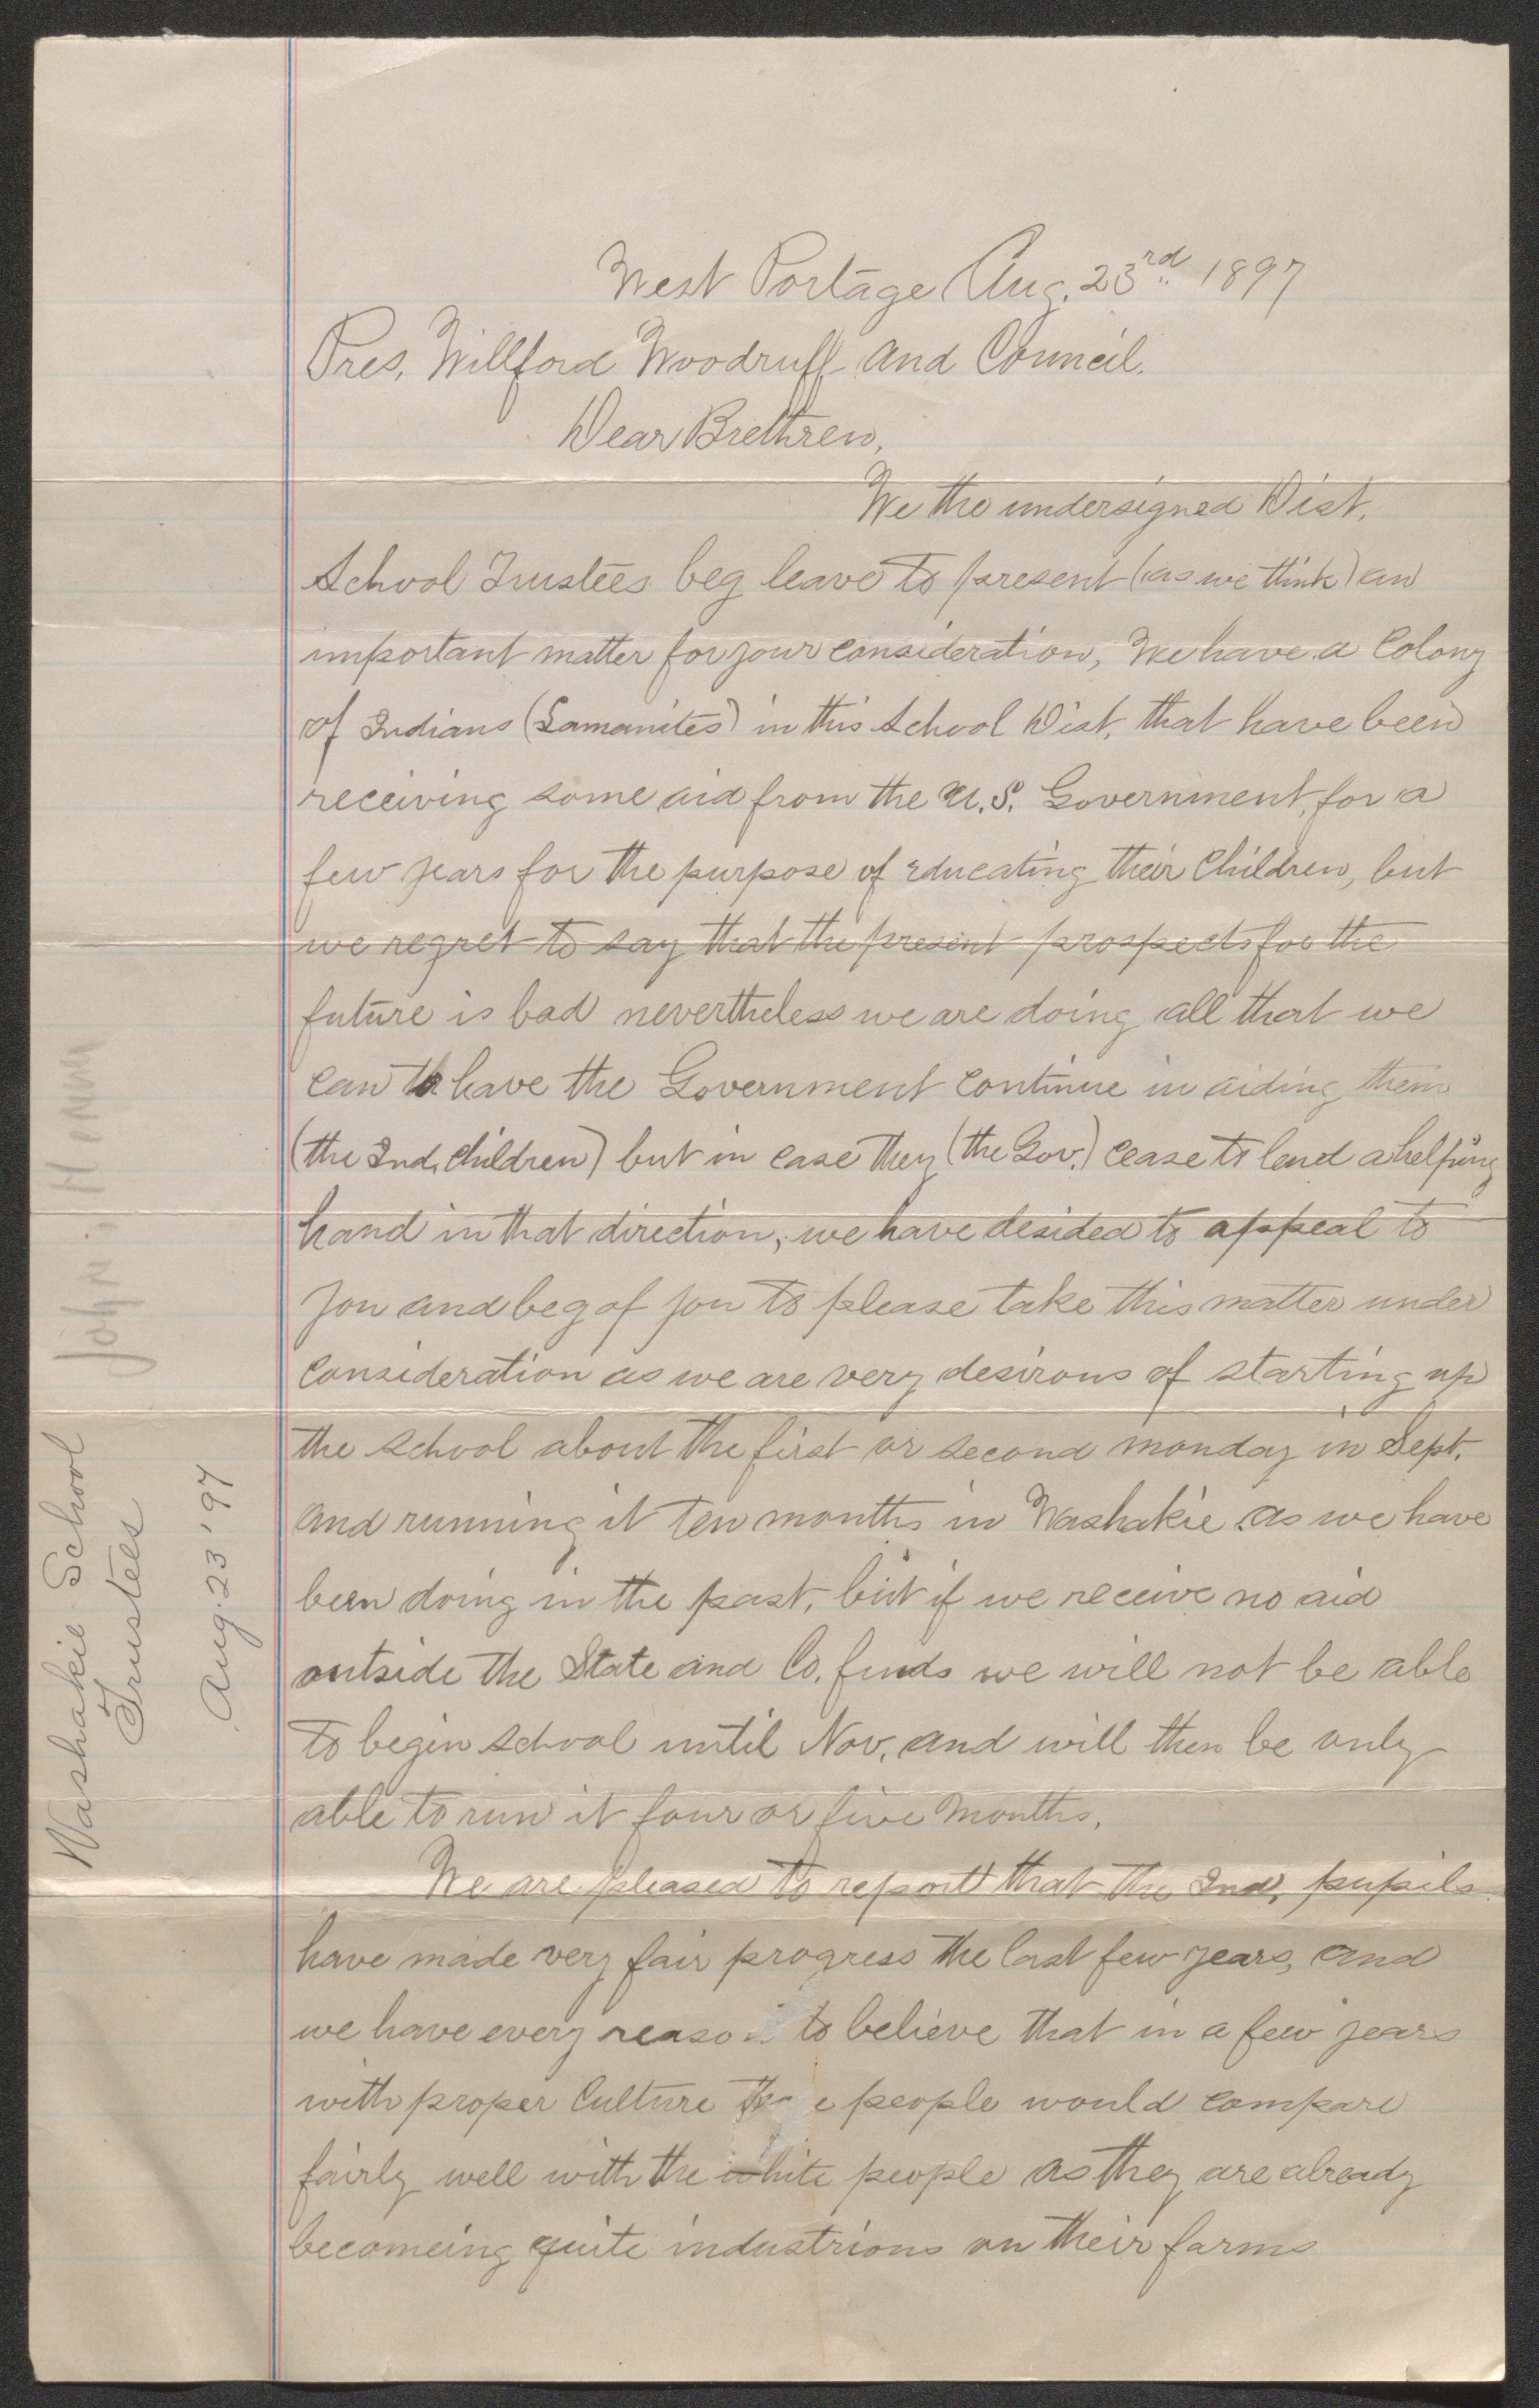 West Portage Aug. 23rd. 1897
Pres. Willford Woodruff and Council.
Dear Brethren,
We the undersigned Dist.
School Trustees beg leave to present (as we think) an
important matter for your consideration, We have a Colony
of Indians (Lamanites) in this School Dist. that have been
receiving some aid from the U.S. Government, for a
few years for the purpose of educating their Children, but
we regret to say that the present prospects for the
future is bad nevertheless we are doing all that we
can to have the Government continue in aiding them
(the Ind. Children) but in case they (the Gov.) cease to lend a helping
hand in that direction, we have desided to appeal to
you and beg of you to please take this matter under
consideration as we are very desirous of starting up
the school about the first or second monday in Sept.
and running it ten months in Washakie. as we have
been doing in the past, but if we receive no aid
outside the State and Co. funds we will not be able
to begin school until Nov. and will then be only
able to run it four or five months.
We are pleased to report that the Ind. pupils
have made very fair progress the last few years, and
we have every reason to believe that in a few years
with proper Culture people would compare
fairly well with the white people as they are already
becomeing quite industrious on their farms
Washakie School
Trustees
Aug. 23 '97
John